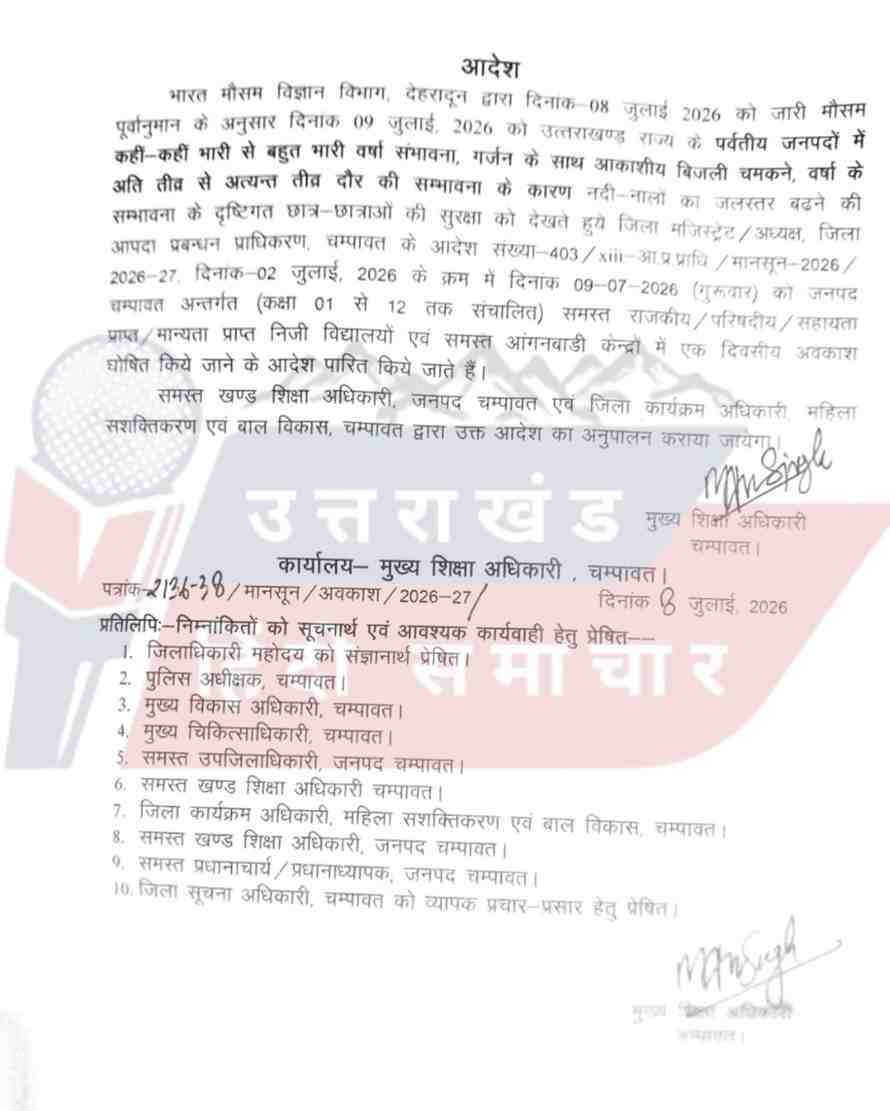 आदेश
भारत मौसम विज्ञान विभाग, देहरादून द्वारा दिनांक–08 जुलाई 2026 को जारी मौसम
पूर्वानुमान के अनुसार दिनांक 09 जुलाई, 2026 को उत्तराखण्ड राज्य के पर्वतीय जनपदों में
कहीं–कहीं भारी से बहुत भारी वर्षा संभावना, गर्जन के साथ आकाशीय बिजली चमकने, वर्षा के
अति तीव्र से अत्यन्त तीव्र दौर की सम्भावना के कारण नदी–नालों का जलस्तर बढने की
सम्भावना के दृष्टिगत छात्र–छात्राओं की सुरक्षा को देखते हुये जिला मजिस्ट्रेट/अध्यक्ष, जिला
आपदा प्रबन्धन प्राधिकरण, चम्पावत के आदेश संख्या–403/xiii–आ.प्र.प्राधि/मानसून–2026/
2026–27, दिनांक–02 जुलाई, 2026 के क्रम में दिनांक 09–07–2026 (गुरूवार) को जनपद
चम्पावत अन्तर्गत (कक्षा 01 से 12 तक संचालित) समस्त राजकीय/परिषदीय/सहायता
प्राप्त/मान्यता प्राप्त निजी विद्यालयों एवं समस्त आंगनबाडी केन्द्रों में एक दिवसीय अवकाश
घोषित किये जाने के आदेश पारित किये जाते हैं।
समस्त खण्ड शिक्षा अधिकारी, जनपद चम्पावत एवं जिला कार्यक्रम अधिकारी, महिला
सशक्तिकरण एवं बाल विकास, चम्पावत द्वारा उक्त आदेश का अनुपालन कराया जायेगा।
उत्तराखंड
मुख्य शिक्षा अधिकारी
चम्पावत।
कार्यालय– मुख्य शिक्षा अधिकारी , चम्पावत।
पत्रांक–2136-38/मानसून/अवकाश/2026–27/ दिनांक 8 जुलाई, 2026
प्रतिलिपिः–निम्नांकितों को सूचनार्थ एवं आवश्यक कार्यवाही हेतु प्रेषित–––
1. जिलाधिकारी महोदय को संज्ञानार्थ प्रेषित।
हिंदी समाचार
2. पुलिस अधीक्षक, चम्पावत।
3. मुख्य विकास अधिकारी, चम्पावत।
4. मुख्य चिकित्साधिकारी, चम्पावत।
5. समस्त उपजिलाधिकारी, जनपद चम्पावत।
6. समस्त खण्ड शिक्षा अधिकारी चम्पावत।
7. जिला कार्यक्रम अधिकारी, महिला सशक्तिकरण एवं बाल विकास, चम्पावत।
8. समस्त खण्ड शिक्षा अधिकारी, जनपद चम्पावत।
9. समस्त प्रधानाचार्य/प्रधानाध्यापक, जनपद चम्पावत।
10. जिला सूचना अधिकारी, चम्पावत को व्यापक प्रचार–प्रसार हेतु प्रेषित।
मुख्य शिक्षा अधिकारी
चम्पावत।